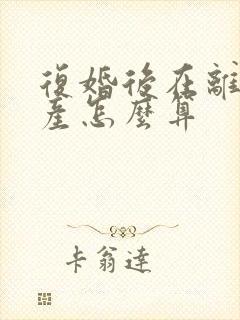 復婚後在離
產怎麼算
卡翁達